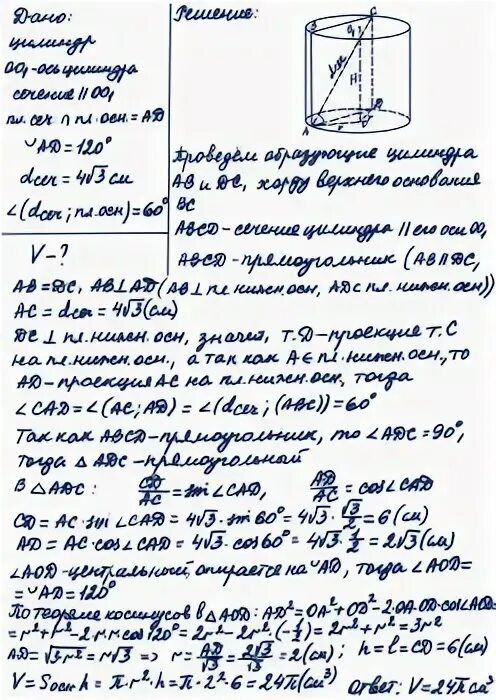 Дано:
цилиндр
OO₁-ось цилиндра
сечение || OO₁
пл. сеч ∩ пл. осн. = AD
◡AD=120°
dсеч = 4√3 см
∠(dсеч; пл. осн)=60°
V-?
Решение:
B C
O₁
dсеч H
A r O D
Проведём образующие цилиндра
AB и DC, хорду верхнего основания
BC
ABCD-сечение цилиндра || его оси OO₁
ABCD-прямоугольник (AB||DC,
AB=DC, AB⊥AD(AB⊥пл нижн. осн, AD⊂пл. нижн. осн))
AC = dсеч = 4√3(см)
DC⊥пл. нижн. осн, значит, т. D-проекция т. C
на пл. нижн. осн., а так как A∈пл. нижн. осн., то
AD-проекция AC на пл. нижн. осн, тогда
∠CAD=∠(AC; AD) = ∠(dсеч; (ABC)) = 60°
Так как ABCD-прямоугольник, то ∠ADC=90°,
тогда △ADC-прямоугольный
В △ADC: CD/AC = sin∠CAD, AD/AC = cos∠CAD
CD = AC·sin∠CAD = 4√3·sin60°= 4√3·√3/2 = 6(см)
AD = AC·cos∠CAD = 4√3·cos60°= 4√3·1/2 = 2√3(см)
∠AOD-центральный, опирается на ◡AD, тогда ∠AOD=
= ◡AD=120°
По теореме косинусов в △AOD: AD²=OA²+OD²-2·OA·OD·cos∠AOD=
=r²+r²-2·r·r·cos120°= 2r²-2r²·(-1/2) = 2r²+r² = 3r²
AD=√3r²=r√3 ⇒ r=AD/√3=2√3/√3=2(см); h=l=CD=6(см)
V=Sосн·h=π·r²·h=π·2²·6=24π(см³) ответ: V=24π см³